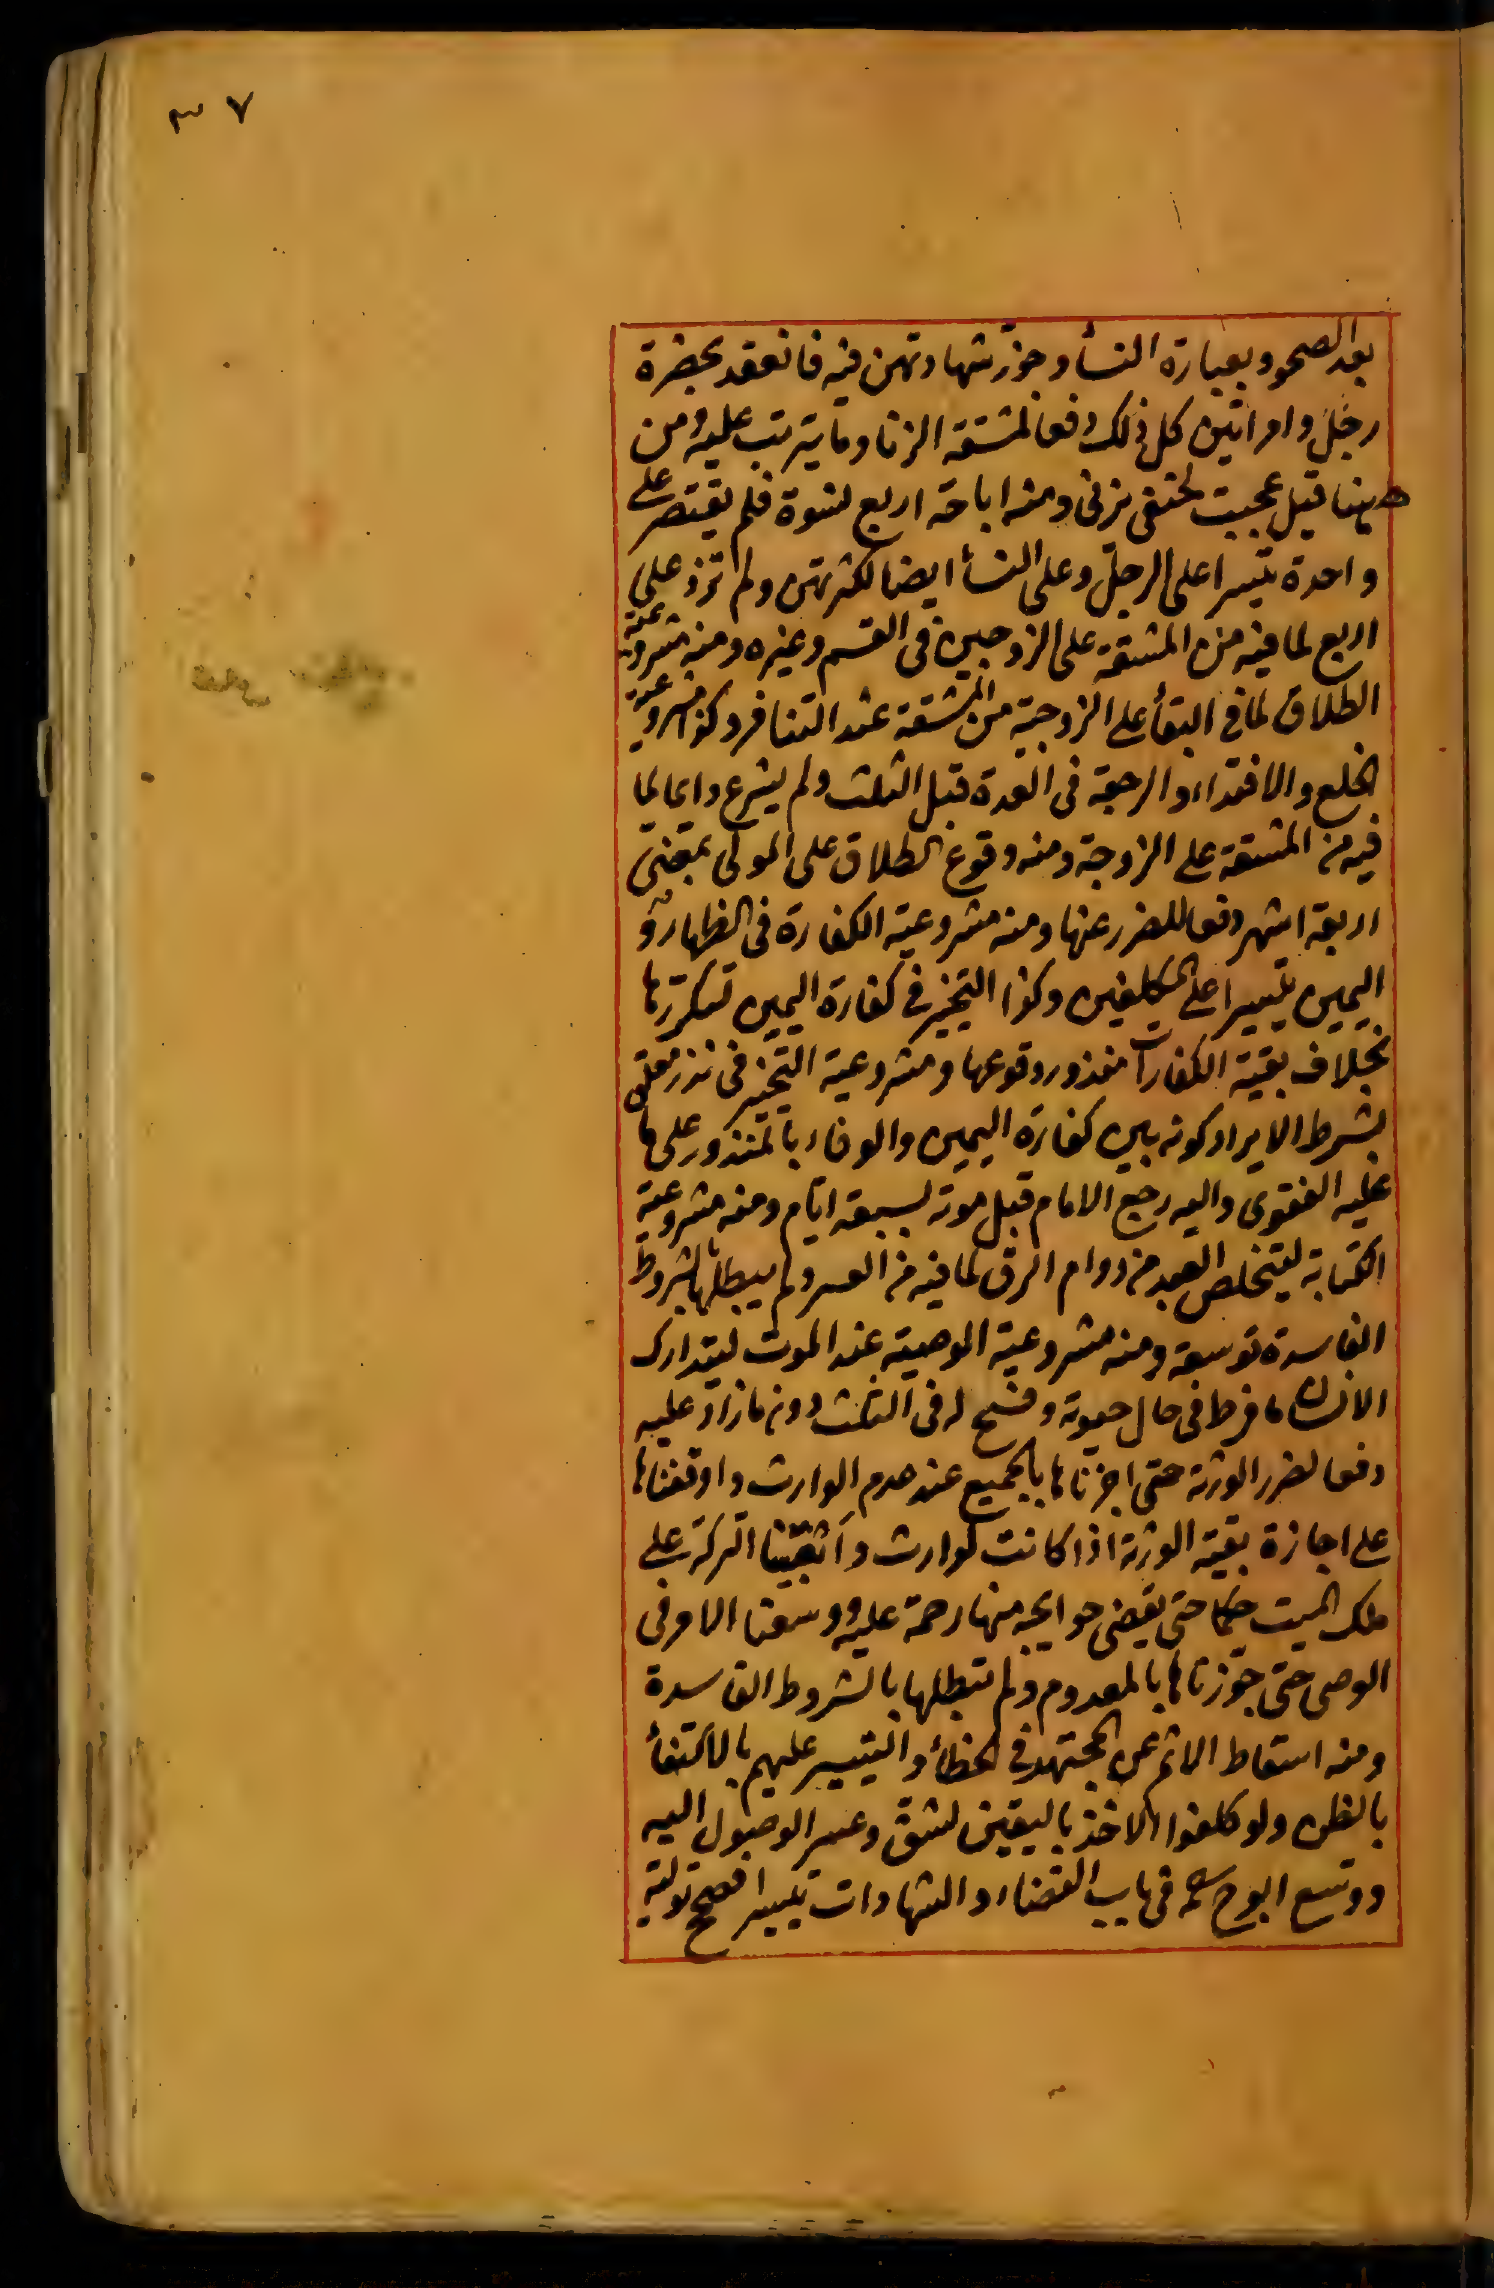 ٣٧
بعد الصحو وبعبارة النسأ وجوز شهادتهن فيه فانعقد بحضرة
رجل وامراتين كل ذلك دفعا لمشقة الزنا وما يترتب عليه ومن
ههنا قيل عجبت لحنفى يزنى ومنه اباحة اربع نسوة فلم يقتصر على
واحدة تيسيرا على الرجل وعلى النسأ ايضا لكثرتهن ولم تزد على
اربع لما فيه من المشقة على الزوجين فى القسم وغيره ومنه مشروعية
الطلاق لما فى البقأ على الزوجية من المشقة عند التنافر وكذا مشروعية
الخلع والافتداء والرجعة فى العدة قبل الثلث ولم يشرع دايما لما
فيه من المشقة على الزوجة ومنه وقوع الطلاق على المولى بمضى
اربعة اشهر دفعا للضرر عنها ومنه مشروعية الكفارة فى الظهار و
اليمين تيسيرا على المكلفين وكذا التخيير فى كفارة اليمين لتكررها
بخلاف بقية الكفارات لندور وقوعها ومشروعية التخيير فى نذر معلق
بشرط لا يراد كونه بين كفارة اليمين والوفاء بالمنذور على ما
عليه الفتوى واليه رجع الامام قبل موته بسبعة ايام ومنه مشروعية
الكتابة ليتخلص العبد من دوام الرق لما فيه من العسر ولم يبطلها بالشروط
الفاسدة توسعة ومنه مشروعية الوصية عند الموت ليتدارك
الانسان ما فرط فى حال حيوته وفسح له فى الثلث دون ما زاد عليه
دفعا لضرر الورثة حتى اجزناها بالجميع عند عدم الوارث واوقفناها
على اجازة بقية الورثة اذا كانت لوارث وابقينا التركة على
ملك الميت حكما حتى يقضى حوايجه منها رحمة عليه ووسعنا الامر فى
الوصى حتى جوزناها بالمعدوم ولم نبطلها بالشروط الفاسدة
ومنه اسقاط الاثم عن المجتهد فى الخطأ والتيسير عليهم بالاكتفأ
بالظن ولو كلفوا الاخذ باليقين لشق وعسر الوصول اليه
ووسع ابو ح فى باب القضاء والشهادات تيسيرا فصح تولية